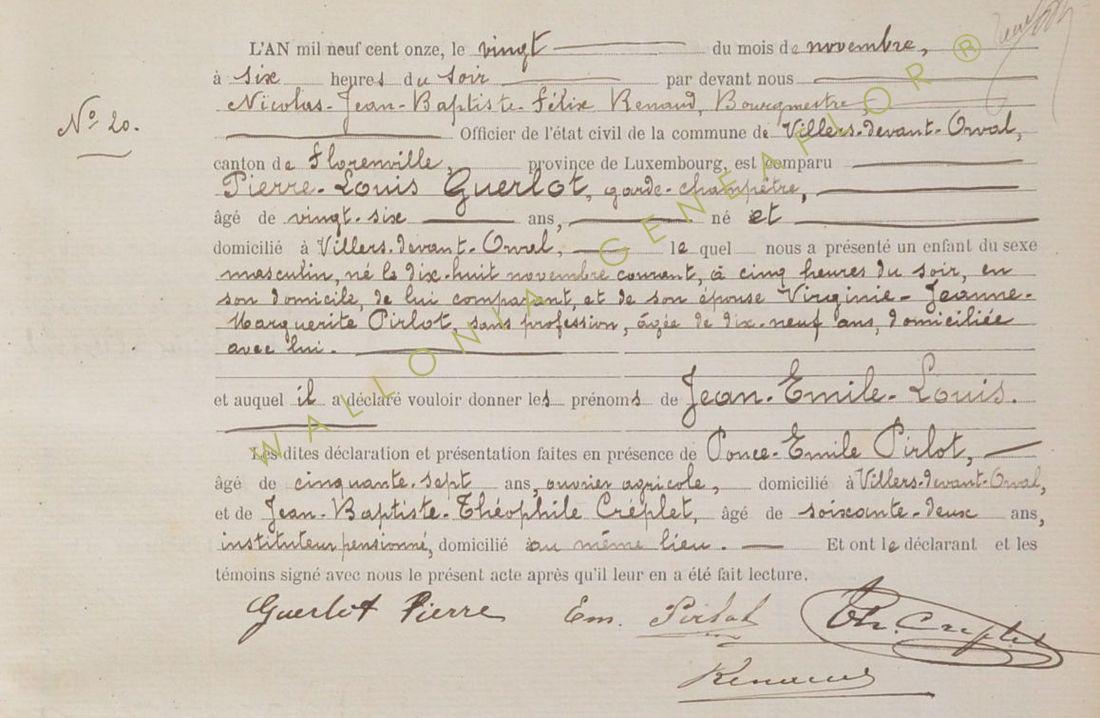 L'AN mil neuf cent onze, le vingt du mois de novembre,
à six heures du soir par devant nous
Nicolas-Jean-Baptiste-Félix Renaud, Bourgmestre
N° 20.
Officier de l'état civil de la commune de Villers-devant-Orval,
canton de Florenville, province de Luxembourg, est comparu
Pierre-Louis Guerlot, garde-champêtre,
âgé de vingt-six ans, né et
domicilié à Villers-devant-Orval, le quel nous a présenté un enfant du sexe
masculin, né le dix-huit novembre courant, à cinq heures du soir, en
son domicile, de lui comparant, et de son épouse Virginie-Jeanne-
Marguerite Pirlot, sans profession, âgée de dix-neuf ans, domiciliée
avec lui.
et auquel il a déclaré vouloir donner les prénoms de Jean-Emile-Louis.
Les dites déclaration et présentation faites en présence de Ponce-Emile Pirlot,
âgé de cinquante-sept ans, ouvrier agricole, domicilié à Villers-devant-Orval,
et de Jean-Baptiste-Théophile Créplet, âgé de soixante-deux ans,
instituteur pensionné, domicilié au même lieu. Et ont le déclarant et les
témoins signé avec nous le présent acte après qu'il leur en a été fait lecture.
Guerlot Pierre Em. Pirlot Th. Creplet
Renaud
WALLONIA GENEAFLOR ®